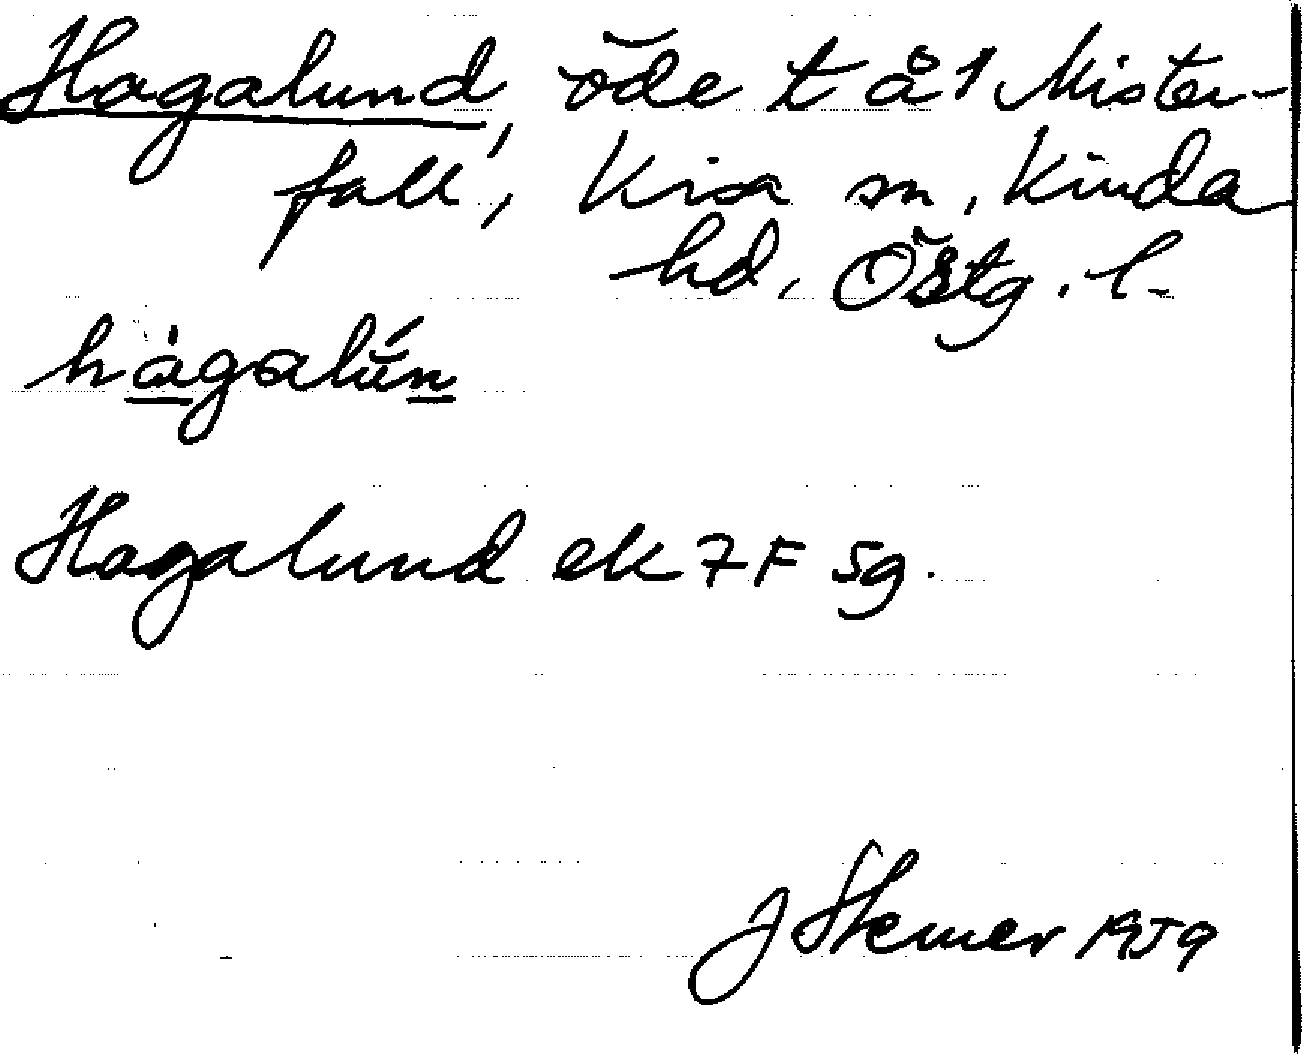 Hagalund, öde t å 1 Mister-
fall, Kisa sn, Kinda
hd, Östg. l.
hàgalún
Hagalund ek 7F 5g.
J Hemer 1959